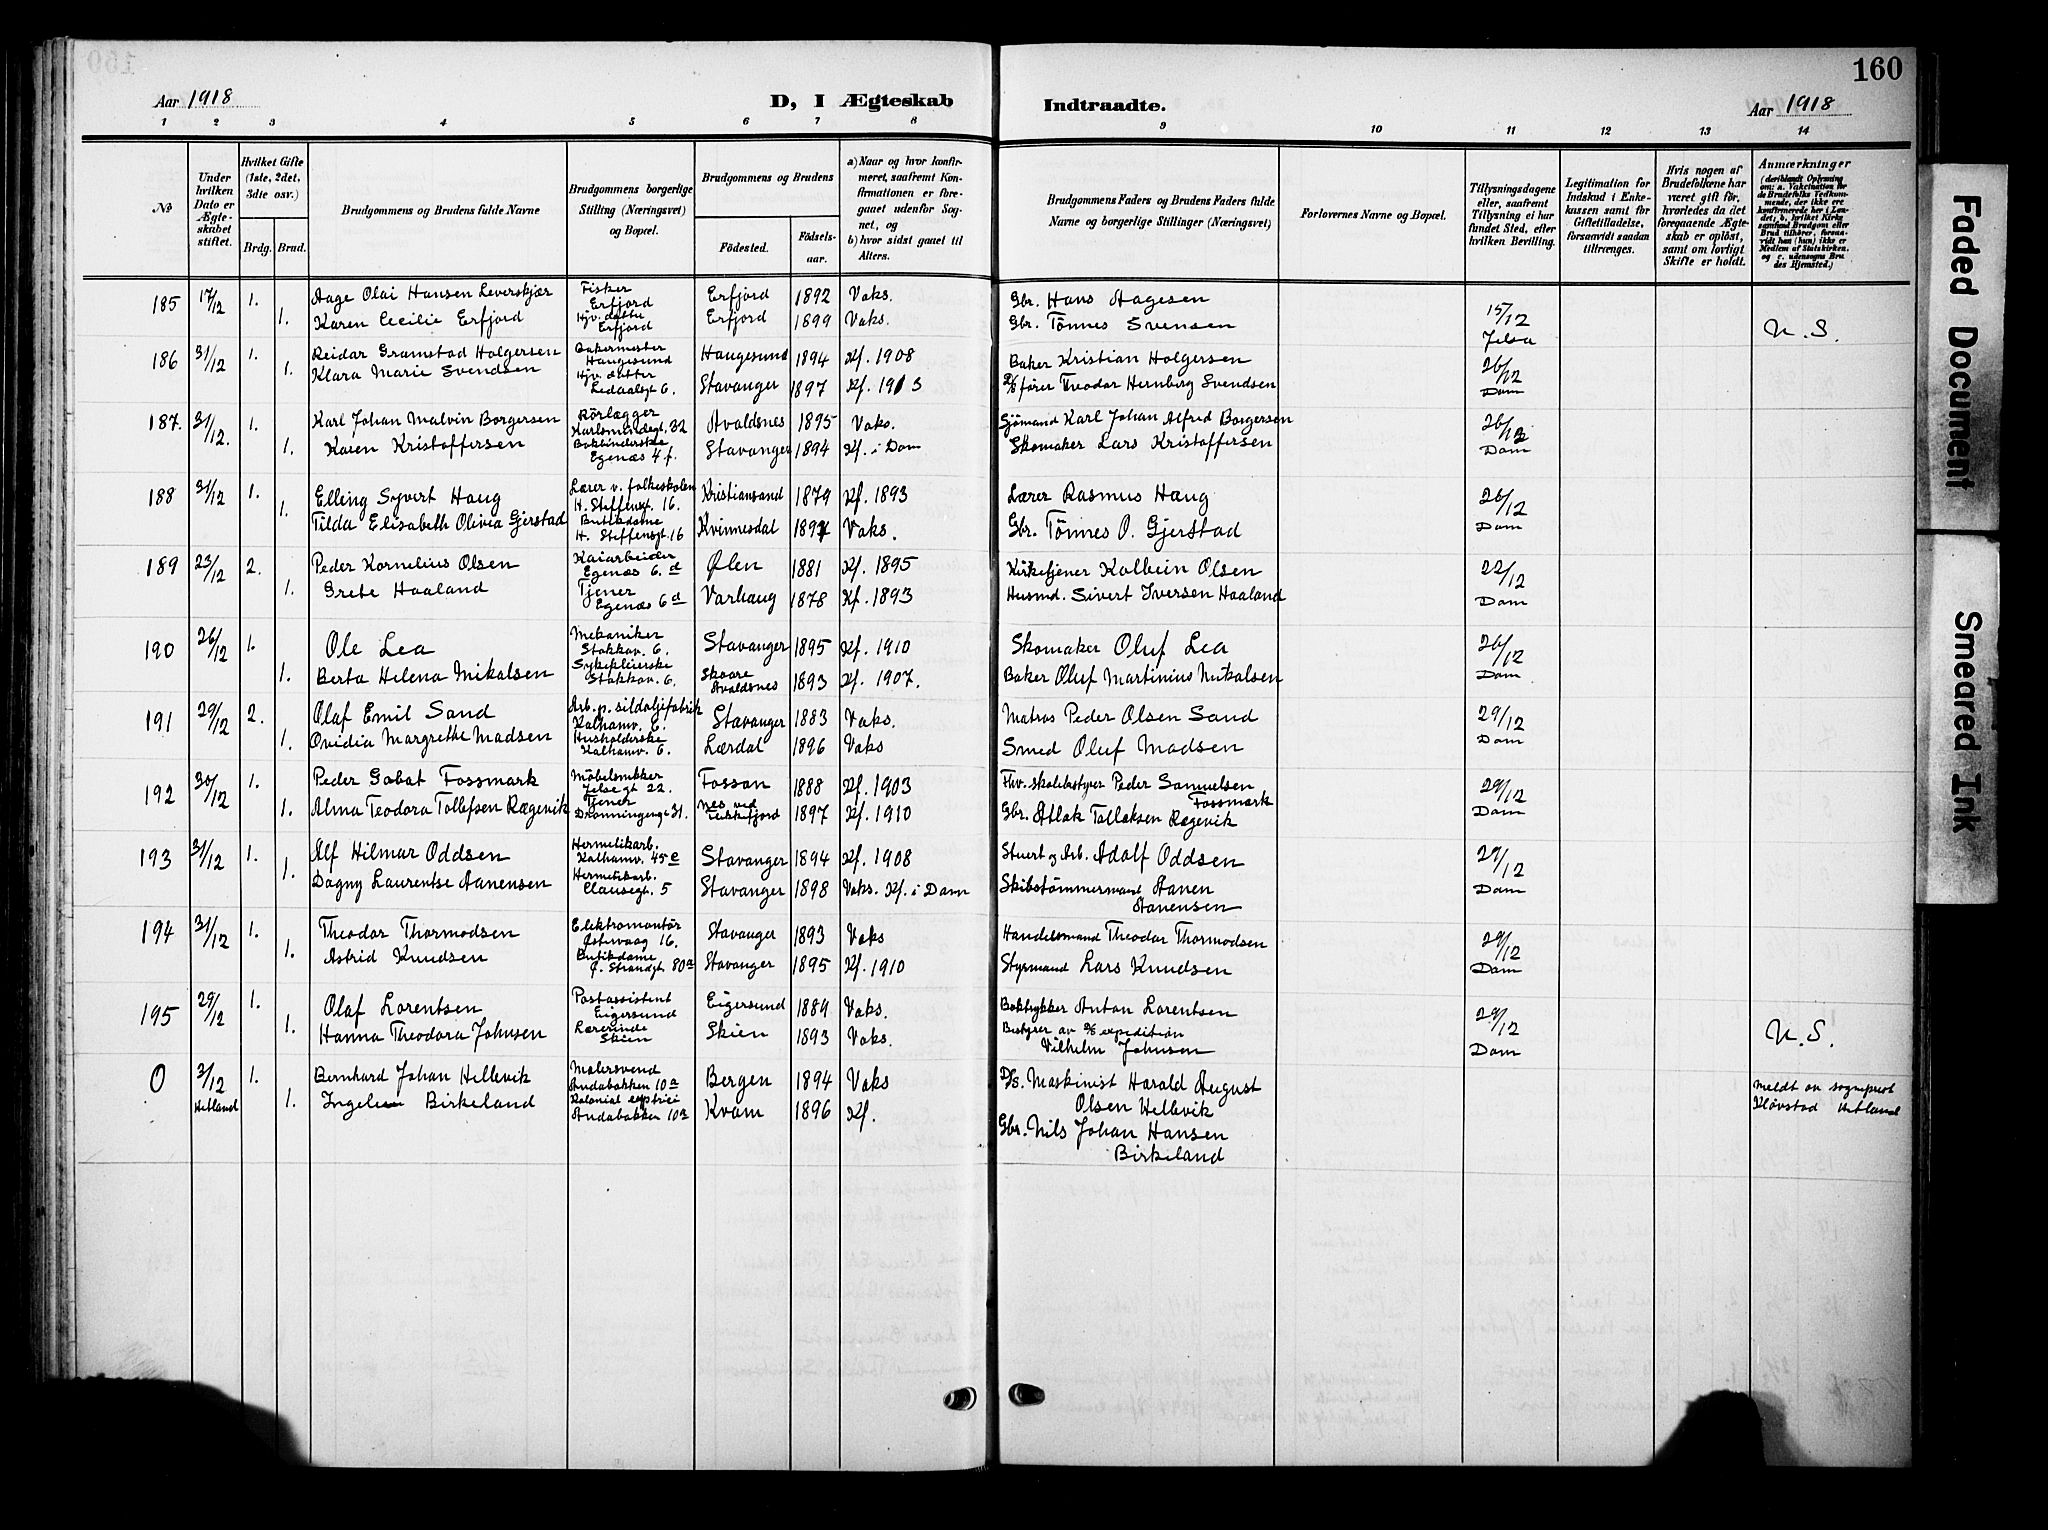 160
Aar 1918
D, I Ægteskab
Indtraadte.
Aar 1918
1 2 3 4 5 6 7 8 9 10 11 12 13 14
No
Under hvilken Dato er Ægteskabet stiftet.
Hvilket Gifte (1ste, 2det, 3die osv.)
Brdg. Brud.
Brudgommens og Brudens fulde Navne
Brudgommens borgerlige Stilling (Næringsvei) og Bopæl.
Brudgommens og Brudens
Fødested.
Fødselsaar.
a) Naar og hvor konfirmeret, saafremt Konfirmationen er foregaaet udenfor Sognet, og
b) hvor sidst gaaet til Alters.
Brudgommens Faders og Brudens Faders fulde Navne og borgerlige Stillinger (Næringsvei)
Forlovernes Navne og Bopæl.
Tillysningsdagene eller, saafremt Tillysning ei har fundet Sted, efter hvilken Bevilling.
Legitimation for Indskud i Enkekassen samt for Giftetilladelse, forsaavidt saadan tiltrænges.
Hvis nogen af Brudefolkene har været gift før, hvorledes da det foregaaende Ægteskab er opløst, samt om lovligt Skifte er holdt.
Anmærkninger
(deriblandt Oplysning om: a. Vakcination for de Brudefolks Vedkommende, der ikke ere konfirmerede her i Landet; b. hvilket Kirkesamfund Brudgom eller Brud tilhører, forsaavidt han (hun) ikke er Medlem af Statskirken, og c. udensogns Brudes Hjemsted.)
185 17/12 1. Aage Olai Hansen Leverskjær Fisker Erfjord Erfjord 1892 Vaks. Gbr. Hans Aagesen 15/12 Jelsa
1. Karen Cecilie Erfjord Gjv. datter Erfjord Erfjord 1899 Vaks. Gbr. Tønnes Svensen U. S.
186 31/12 1. Reidar Gramstad Holgersen Bakermester Haugesund Haugesund 1894 Kf. 1908 Baker Kristian Holgersen 26/12 Dom
1. Klara Marie Svendsen Hjv. datter Ledaalsgt 6. Stavanger 1897 Kf. 1913 D/S fører Teodor Hernberg Svendsen
187. 31/12. 1. Karl Johan Malvin Borgersen Rörlægger Karlsmindegt. 32 Avaldsnes 1895 Vaks. Sjømand Karl Johan Alfred Borgersen 26/12 Dom
1. Karen Kristoffersen Bokbinderske Egenæs 4 f. Stavanger 1894 Kf. i Dom Skomaker Lars Kristoffersen
188 31/12 1. Elling Syvert Haug Lærer v. folkeskolen H. Steffensgt. 16. Kristiansand 1879 Kf. 1893 Lærer Rasmus Haug 26/12 Dom
1. Tilda Elisabeth Olivia Gjerstad Butikdame H. Steffensgt. 16 Kvinnesdal 1897 Vaks. Gbr. Tønnes O. Gjerstad
189 23/12 2. Peder Kornelius Olsen Kaiarbeider Egenæs 6. d Ølen 1881 Kf. 1895 Kirketjener Kolbein Olsen 22/12 Dom
1. Grete Haaland Tjener Egenæs 6 d Varhaug 1878 Kf. 1893 Husmd. Sivert Iversen Haaland
190 26/12 1. Ole Lea Mekaniker Stokkav. 6. Stavanger 1895 Kf. 1910 Skomaker Oluf Lea 26/12 Dom
1. Berta Helena Mikalsen Sykepleierske Stokkav. 6. Skaare Avaldsnes 1893 Kf. 1907. Baker Oluf Martinius Mikalsen
191 29/12 2. Olaf Emil Sand Arb. p. sildoljefabrik Kalhamv. 6. Stavanger 1883 Vaks. Matros Peder Olsen Sand 29/12 Dom
1. Ovidia Margrethe Madsen Husholderske Kalhamv. 6. Lærdal 1896 Vaks Smed Oluf Madsen
192 30/12 1. Peder Gabat Fossmark Møbelsnikker Jelsegt 22. Fossan 1888 Kf. 1903 Peder Samuelsen Fossmark 29/12 Dom
1. Alma Teodora Tollefsen Rægevik Tjener Dronningengt 31. Nes ved Flekkefjord 1897 Kf. 1910 Gbr. Atlak Tollaksen Rægevik
193 31/12 1. Alf Hilmar Oddsen Hermetikarb. Kalhamv. 45 e Stavanger 1894 Kf. 1908 Stuert og Arb. Adolf Oddsen 29/12 Dom
1. Dagny Laurentse Aanensen Hermetikarb. Clausegt. 5 Stavanger 1898 Vaks. Kf. i Dom Skibstømmermand Aanen Aanensen
194 31/12 1. Theodor Thormodsen Elektromontør Østervaag 16. Stavanger 1893 Vaks Handelsmand Theodor Thormodsen 29/12 Dom
1. Astrid Knudsen Butikdame Ø. Strandgt 80 a Stavanger 1895 Kf. 1910 Styrmand Lars Knudsen
195 29/12 1. Olaf Lorentsen Postassistent Eigersund Eigersund 1889 Vaks. Boktrykker Anton Lorentsen 29/12 Dom
1. Hanna Theodora Johnsen Lærerinde Skien Skien 1893 Vaks. Bestyrer av D/S expedition Vilhelm Johnsen U. S.
0 3/12 Hetland 1. Bernhard Johan Hellevik Malersvend Andabakken 10 a Bergen 1894 Vaks D/S. Maskinist Harald August Olsen Hellevik Meldt av sogneprest Kløvstad Hetland
1. Birkeland Andabakken 10 a Kvam 1896 Kf. Gbr. Nils Johan Hansen Birkeland
Faded Document
Smeared Ink